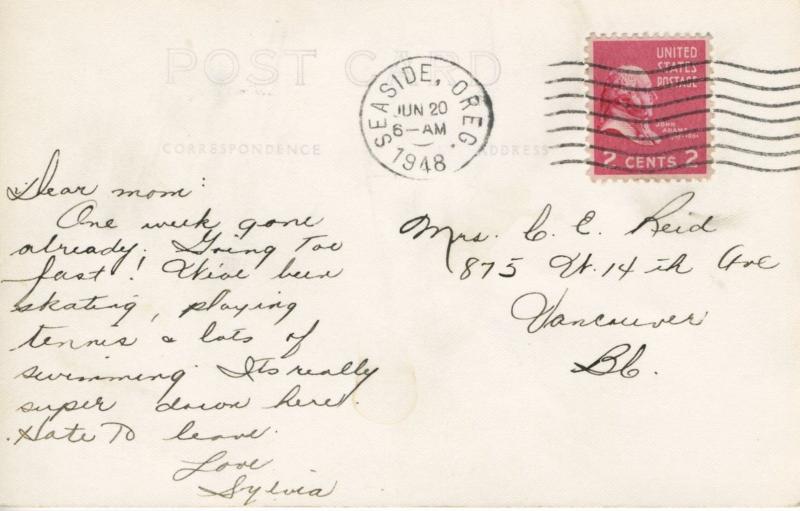 POST CARD
CORRESPONDENCE
ADDRESS
SEASIDE, OREG.
JUN 20
6-AM
1948
UNITED
STATES
POSTAGE
JOHN
ADAMS
2 CENTS 2
Dear mom:
One week gone
already. Going too
fast! We've been
skating, playing
tennis & lots of
swimming. Its really
super down here.
Hate to leave.
Love
Sylvia
Mrs. C. E. Reid
875 W. 14th Ave
Vancouver
BC.